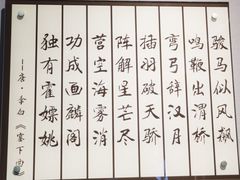 骏马似风飙
鸣鞭出渭桥
弯弓辞汉月
插羽破天骄
阵解星芒尽
营空海雾消
功成画麟阁
独有霍嫖姚
——唐·李白《塞下曲》